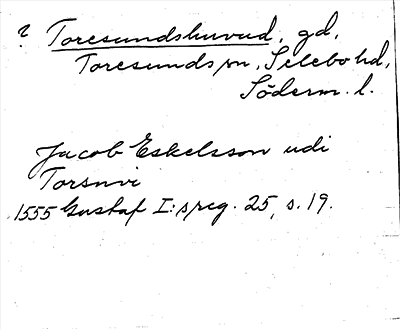 ? Toresundshuvud, gd,
Toresunds sn, Selebo hd,
Söderm. l.
Jacob Eskelsson udi
Torsuvi
1555 Gustaf I:s reg. 25, s. 19.